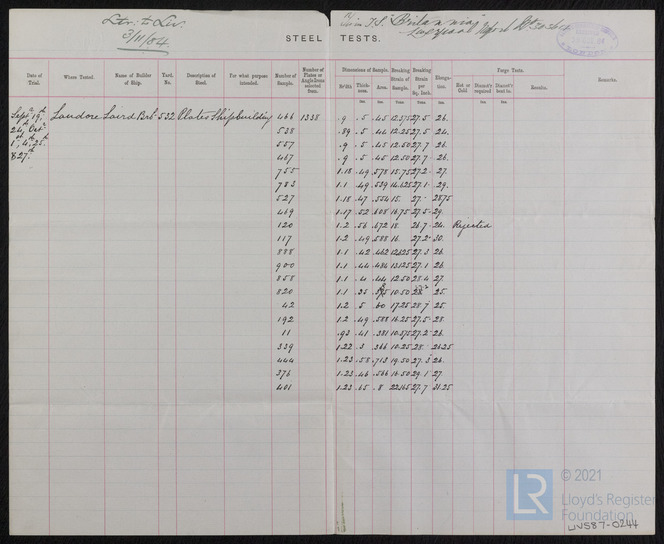 Ltr: to Liv.
3/11/84
STEEL TESTS.
Date of Trial. Where Tested. Name of Builder of Ship. Yard. No. Description of Steel. For what purpose intended. Number of Sample. Number of Plates or Angle Irons selected from. Dimensions of Sample. Breaking Strain of Sample. Breaking Strain per Sq. Inch. Elongation. Forge Tests. Remarks.
Br'dth Thickness. Area. Tons Tons Hot or Cold Diamt'r required Diamt'r bent to. Results.
Ins Ins Ins Ins
Sept 19th Landore Laird Bros 532 Plates Shipbuilding 466 1338 .9 .5 .45 12.375 27.5 26.
24, Octr 538 .89 .5 .44 12.25 27.5 24.
1, 4, 25 557 .9 .5 .45 12.50 27.7 26.
& 27th 467 .9 .5 .45 12.50 27.7 26.
755 1.18 .49 .578 15.75 27.2 27.
783 1.1 .49 .539 14.625 27.1 29.
527 1.18 .47 .554 15. 27 28.75
469 1.17 .52 .608 16.75 27.5 29.
120 1.2 .56 .672 18. 26.7 24. Rejected
117 1.2 .49 .588 16. 27.2 30.
888 1.1 .42 .462 12.625 27.3 26.
900 1.1 .44 .484 13.125 27.1 26.
858 1.1 .4 .44 12.50 28.4 27.
820 1.1 .35 10.50 25.
42 1.2 .5 .60 17.25 28.7 25.
192 1.2 .49 .588 16.25 27.5 28.
11 .93 .41 .381 10.375 27.2 26.
339 1.22 .3 .366 10.25 28. 26.25
444 1.23 .58 .713 19.50 27.3 26.
376 1.23 .46 .566 16.50 29.1 27.
401 1.23 .65 .8 22.165 27.7 31.25
LR © 2021
Lloyd's Register
Foundation
LNS87-0244